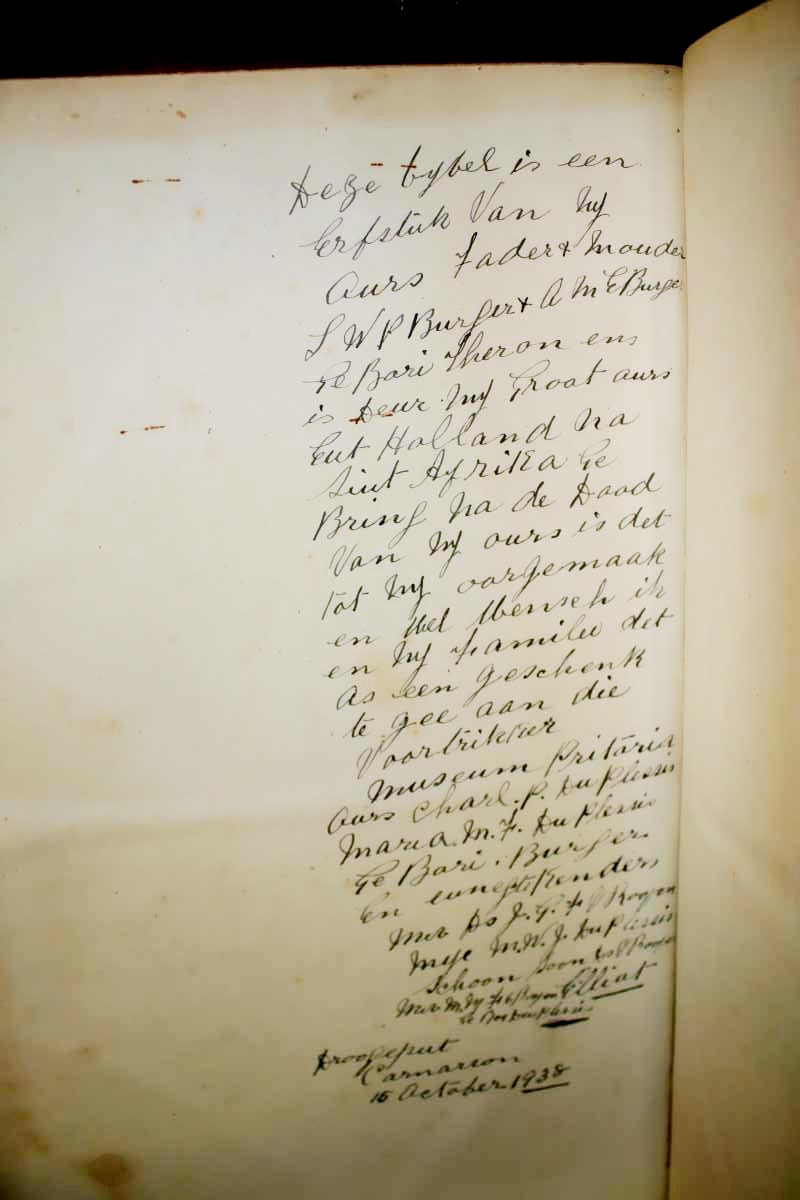 Deze bybel is een
Erfstuk Van my
Ours Fader & Mouder
S W P Burger & A M E Burger
Ge Bori Theron ens
is Deur my Groot ours
Eut Holland na
Siut Afrika Ge
Bring na de Dood
Van my ours is det
tot my oorgemaak
en Wel Wensch ik
en my Familie det
As een geschenk
te gee aan die
Voortrikker
Museum Pritoria
Ours Charl. P. Du Plessis
Maria. M. F. Du Plessis
Ge Bori. Burger.
En Kenders
Mev Ds J. G. F
Mej M. W. J. Du Plessis
Schoon Soon
Mev Elliot
Ge Du Plessis
Droogeput
Carnarvon
15 October 1938